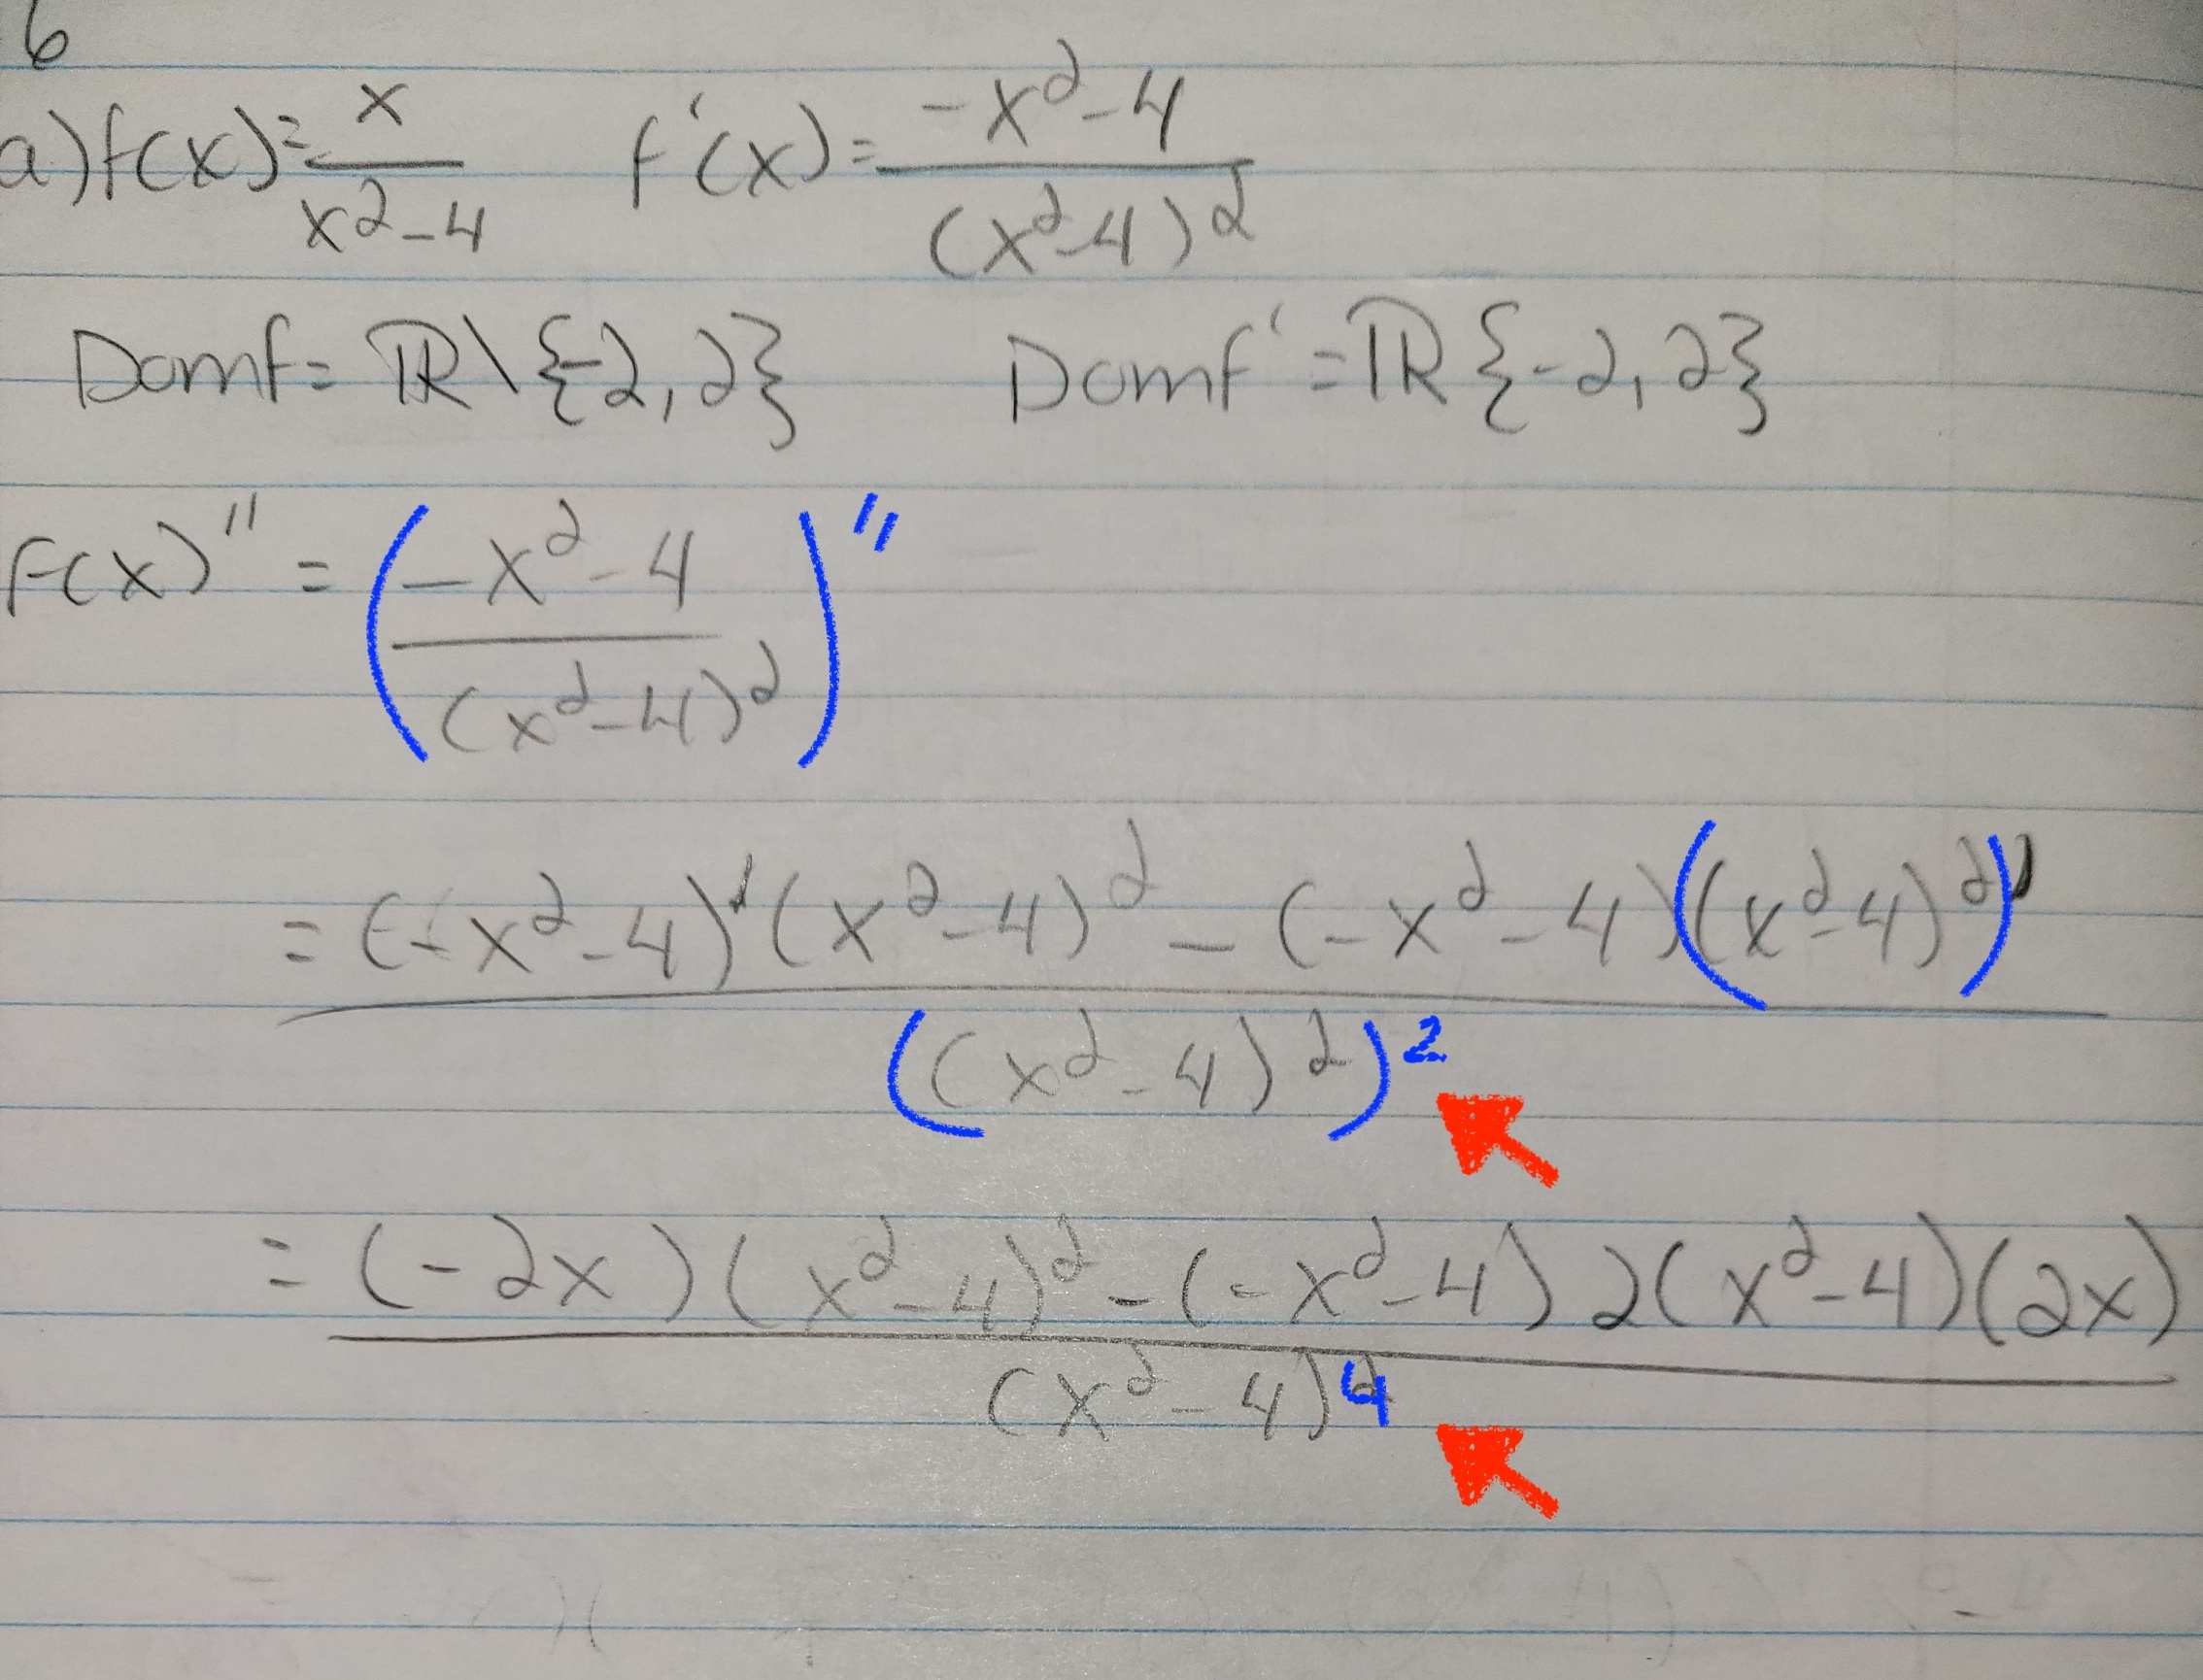 6
a) f(x) = x / (x² - 4)    f'(x) = (-x² - 4) / (x² - 4)²
Domf = ℝ \ {-2, 2}    Domf' = ℝ {-2, 2}
f(x)" = ( (-x² - 4) / (x² - 4)² )"
= [(-x² - 4)' (x² - 4)² - (-x² - 4) ((x² - 4)²)'] / ((x² - 4)²)²
= [(-2x) (x² - 4)² - (-x² - 4) 2(x² - 4)(2x)] / (x² - 4)⁴